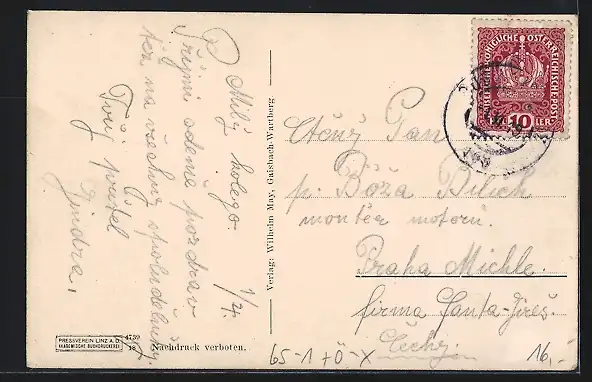 Milý kolego.
1/4.
Přijmi odemě pozdrav
též na všechny spoludělníky
Tvůj přítel
Jindra,
PRESSVEREIN LINZ A.D.
AKADEMISCHE BUCHDRUCKEREI
4739
18
Nachdruck verboten.
Verlag: Wilhelm May, Gaisbach-Wartberg
KÖNIGLICHE ÖSTERREICHISCHE POST
10
Ctěný Pan
p. Böža Bílich
montér motorů.
Praha Michle.
firma Janta-Jireš.
Čechy.
65-1+Ö-X
16,-